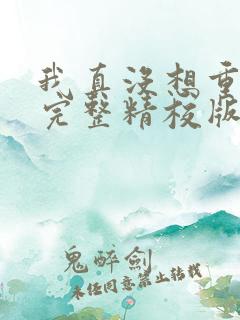 我真没想重
完整精校版
鬼醉剑
未经同意禁止转载